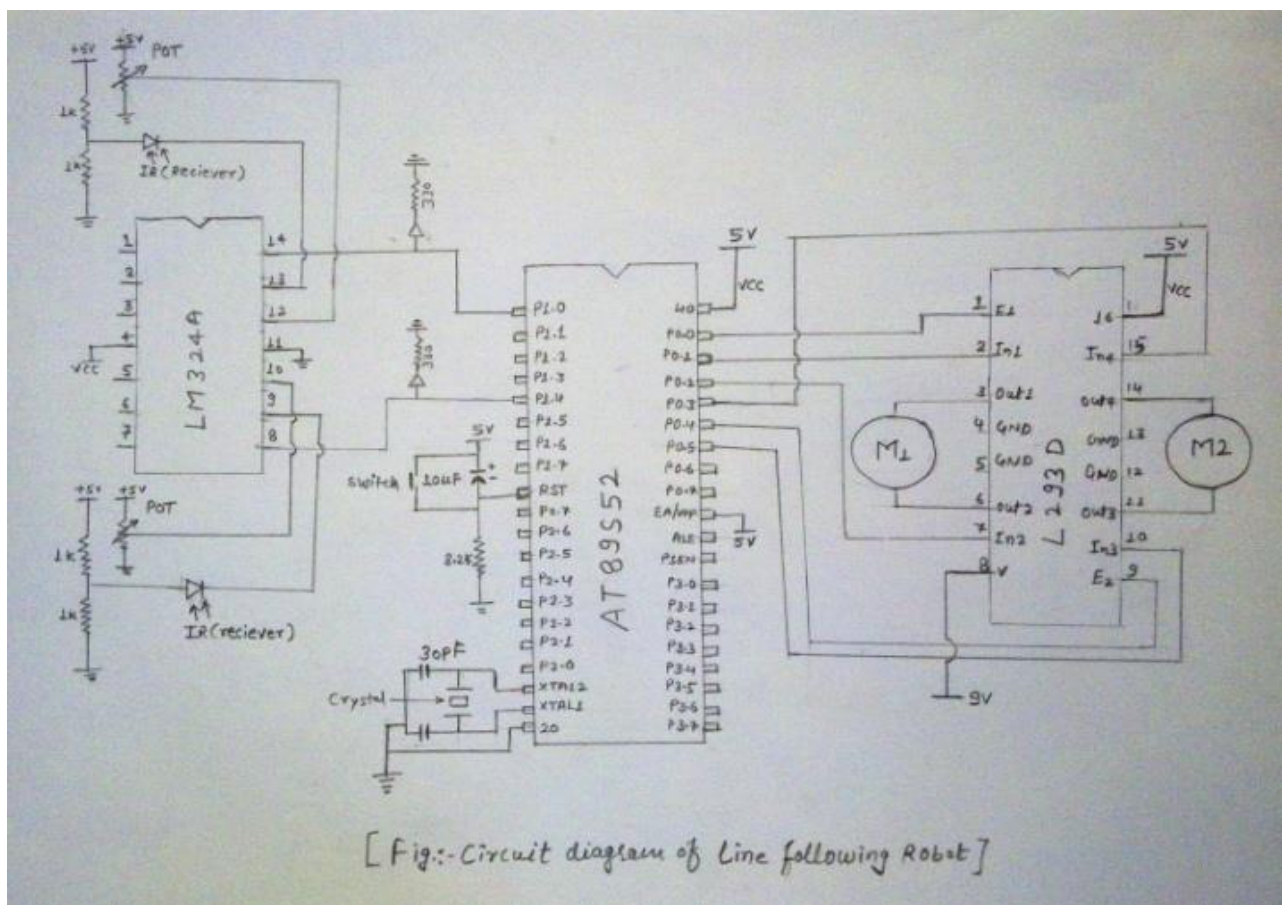 +5V
+5V
POT
1K
1K
IR (Reciever)
330
1
2
3
4
5
6
7
VCC
LM324A
14
13
12
11
10
9
8
330
+5V
+5V
POT
1K
1K
IR (reciever)
5V
Switch
10uF
+
-
8.2K
30PF
Crystal
P1.0
P1.1
P1.2
P1.3
P1.4
P1.5
P1.6
P1.7
RST
P2.6
P2.5
P2.4
P2.3
P2.2
P2.1
P2.0
XTAL2
XTAL1
20
AT89S52
5V
VCC
40
P0.0
P0.1
P0.2
P0.3
P0.4
P0.5
P0.6
P0.7
EA/VPP
5V
ALE
PSEN
P3.0
P3.1
P3.2
P3.3
P3.4
P3.5
P3.6
P3.7
M1
1 E1
2 In1
3 Out1
4 GND
5 GND
6 Out2
7 In2
8 V
9V
L293D
5V
VCC
16
In4 15
Out4 14
GND 13
GND 12
Out3 11
In3 10
E2 9
M2
[Fig:- Circuit diagram of Line following Robot]